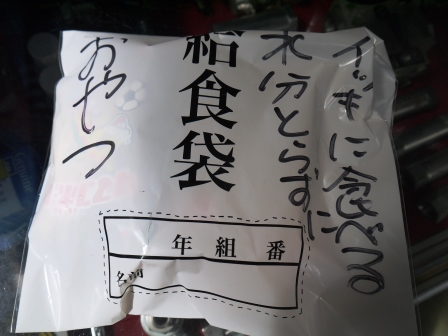 イッキに食べる
水分とらずに
給食袋
おやつ
年 組 番
名前